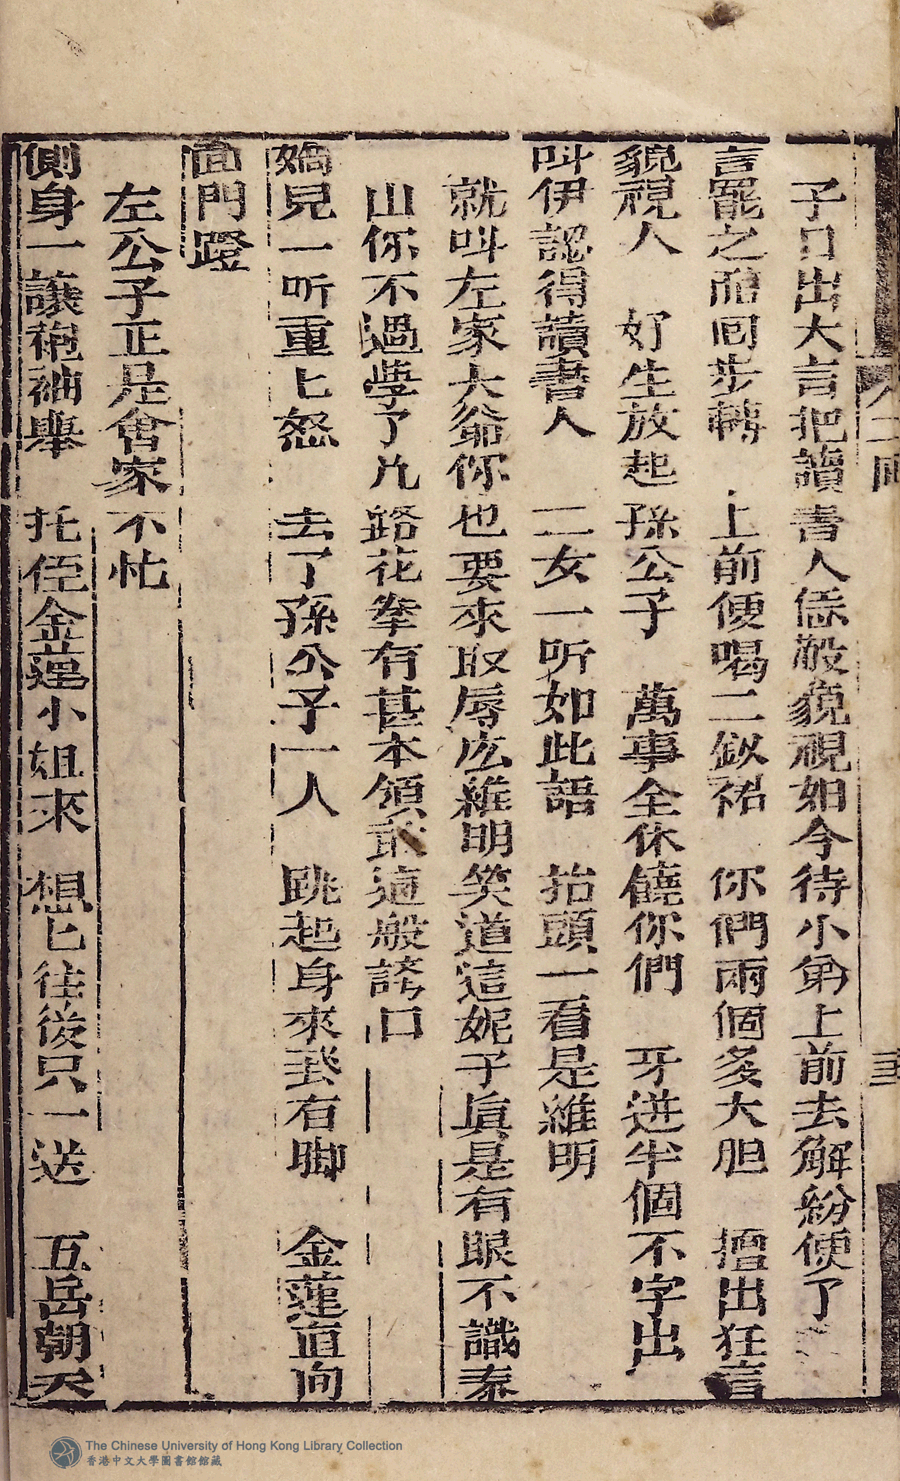 子口出大言把讀書人恁般藐視如今待小弟上前去解紛便了
言罷之而回步轉　上前便喝二釵裙　你們兩個多大胆　擅出狂言
藐視人　好生放起孫公子　萬事全休饒你們　牙迸半個不字出
叫伊認得讀書人　二女一听如此語　抬頭一看是維明
就叫左家大爺你也要來取辱庅維明笑道這妮子眞是有眼不識泰
山你不過學了几路花拳有甚本領敢這般誇口
嬌見一听重匕怒　去了孫公子一人　跳起身來飛有脚　金蓮直向
面門蹬
左公子正是會家不忙
側身一讓袍袖舉　托住金蓮小姐來　想匕往後只一送　五岳朝天
二回
The Chinese University of Hong Kong Library Collection
香港中文大學圖書館館藏